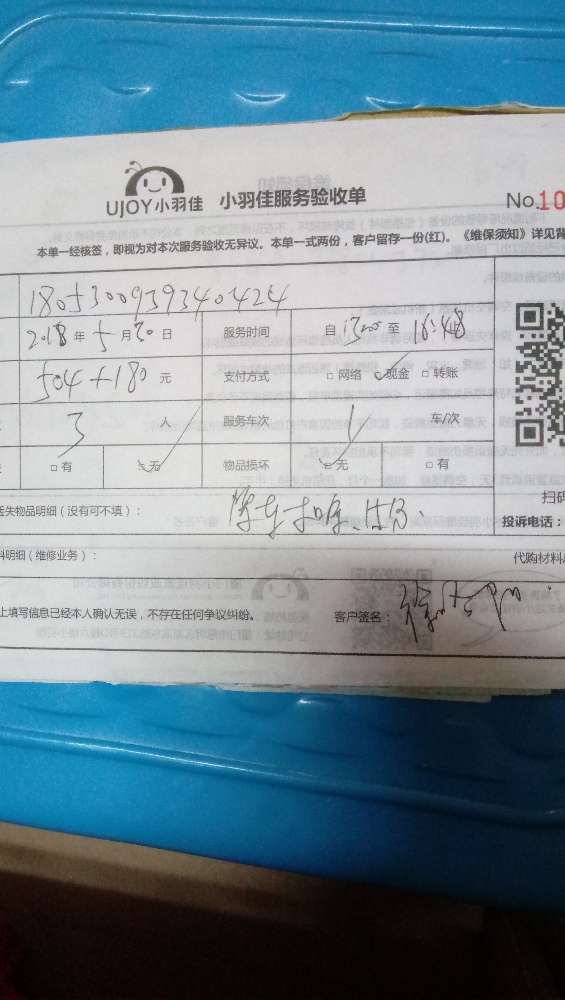 UJOY小羽佳 小羽佳服务验收单 No.10
本单一经核签，即视为对本次服务验收无异议。本单一式两份，客户留存一份(红)。《维保须知》详见背
180530093939340424
2018年5月30日 服务时间 自13:00至16:48
504+180元 支付方式 网络 现金 转账
3人 服务车次 1车/次
有 无 物品损坏 无 有
扫码
丢失物品明细（没有可不填）： 投诉电话：
料明细（维修业务）： 代购材料
上填写信息已经本人确认无误，不存在任何争议纠纷。 客户签名：